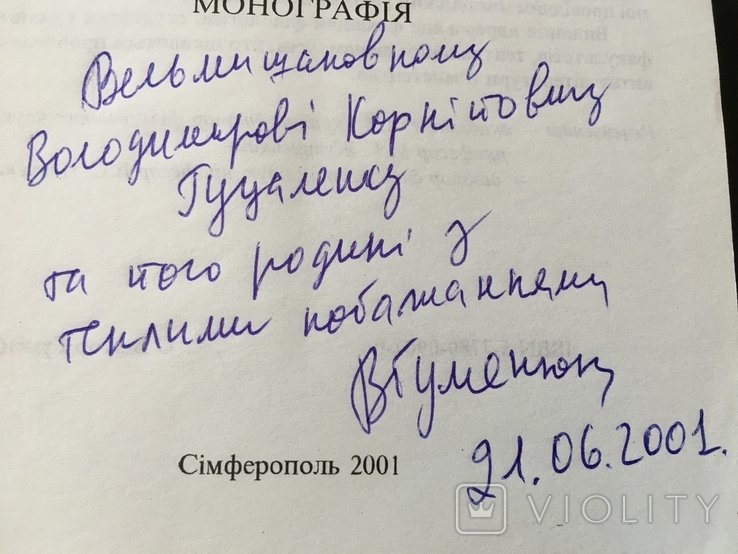 МОНОГРАФІЯ
Вельмишановному
Володимирові Корнійовичу
Гуцаленку
та його родині з
теплими побажаннями
ВГуменюк
21.06.2001.
Сімферополь 2001
VIOLITY